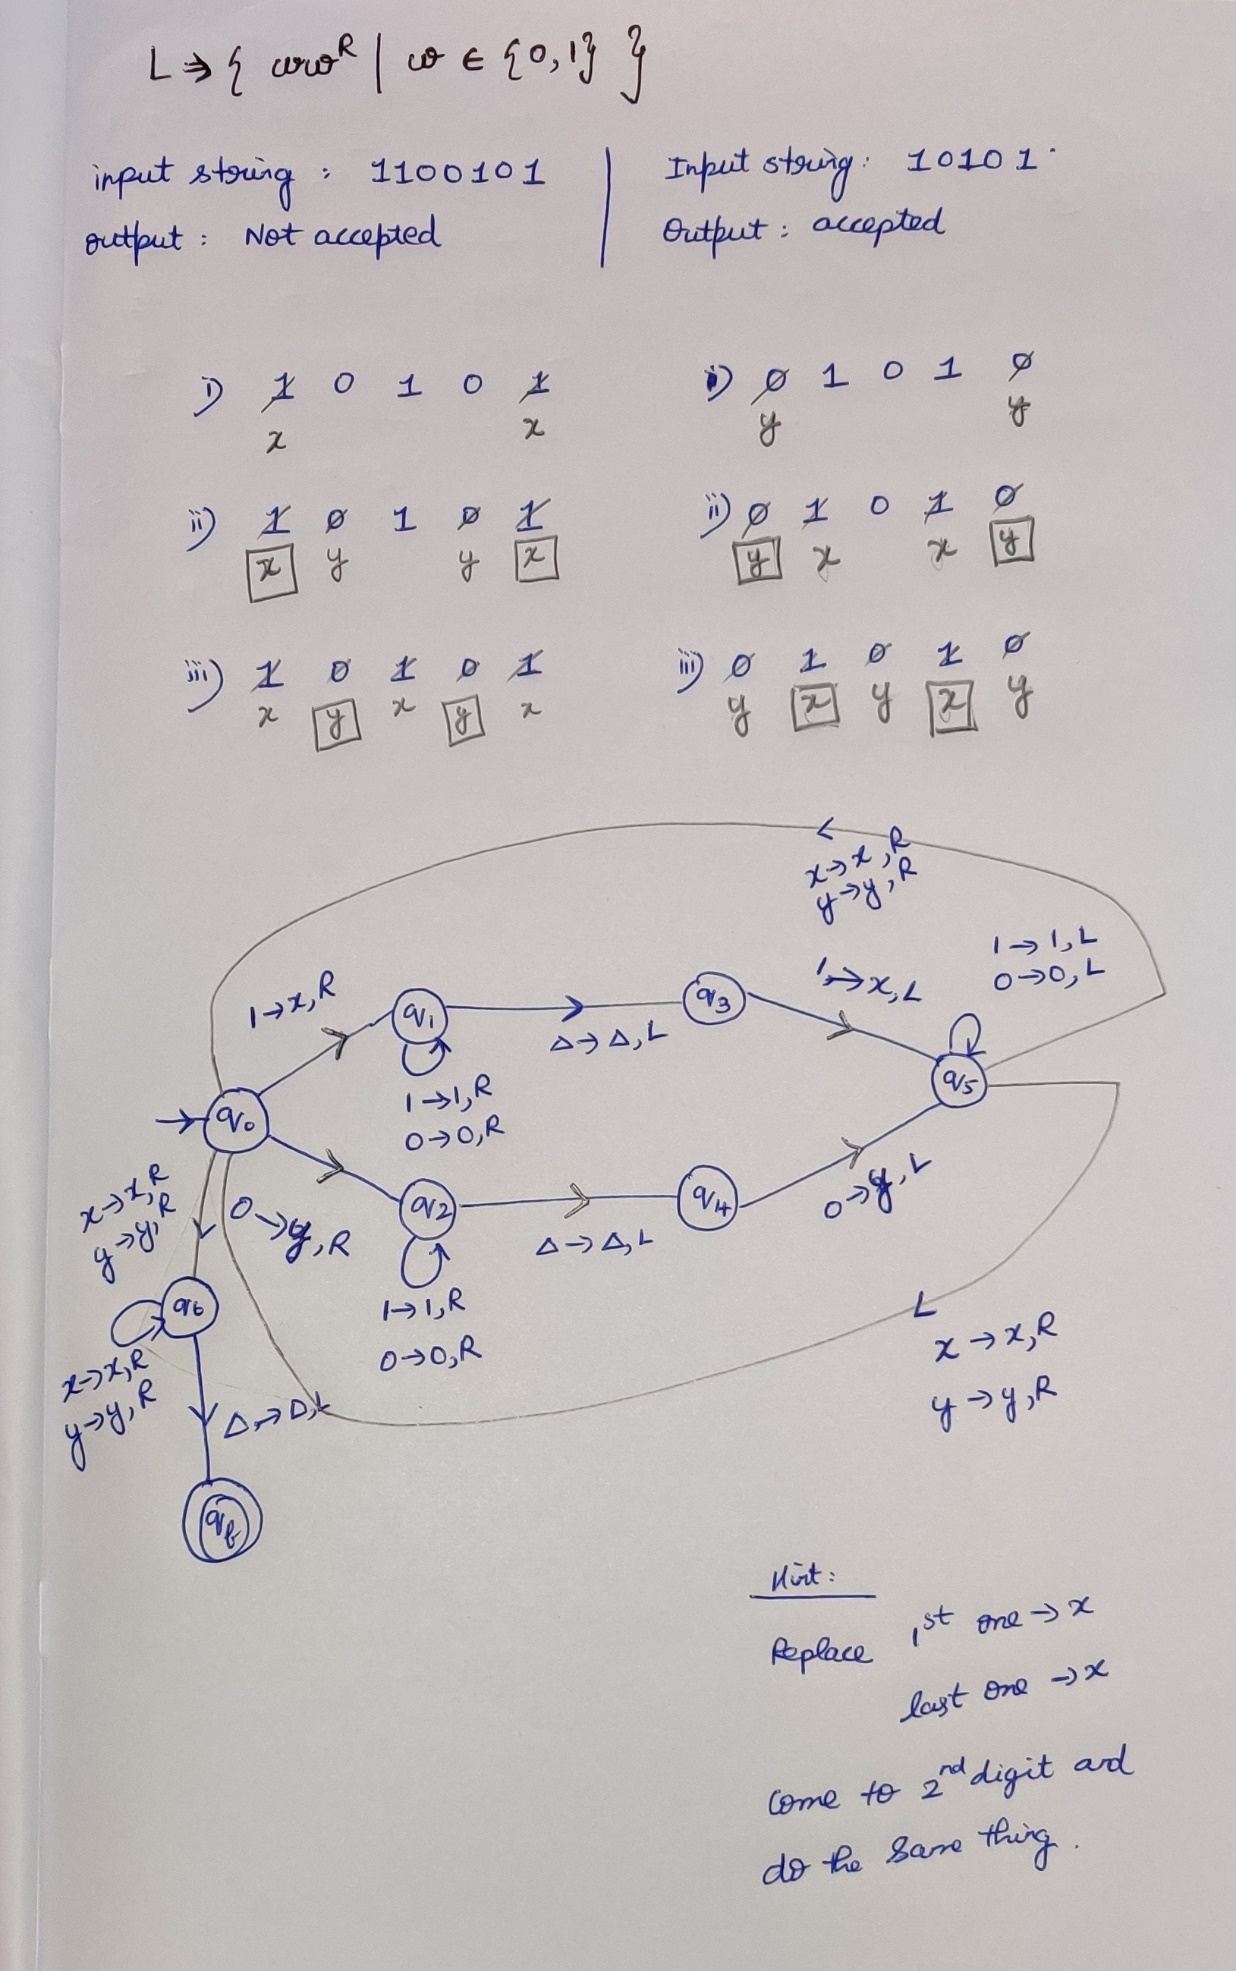 L → { ww^R | w ∈ {0,1} }
input string : 1100101
output : Not accepted
Input string : 10101
Output : accepted
i) 1 0 1 0 1
x x
ii) 1 0 1 0 1
x y y x
iii) 1 0 1 0 1
x y x y x
i) 0 1 0 1 0
y y
ii) 0 1 0 1 0
y x x y
iii) 0 1 0 1 0
y x y x y
x→x,R
y→y,R
1→1,L
0→0,L
1→x,R
q1
Δ→Δ,L
q3
1→x,L
q5
1→1,R
0→0,R
q0
0→y,R
q2
Δ→Δ,L
q4
0→y,L
1→1,R
0→0,R
x→x,R
y→y,R
q6
x→x,R
y→y,R
Δ→Δ,L
qf
x→x,R
y→y,R
Hint:
Replace 1st one → x
last one → x
Come to 2nd digit and
do the same thing.